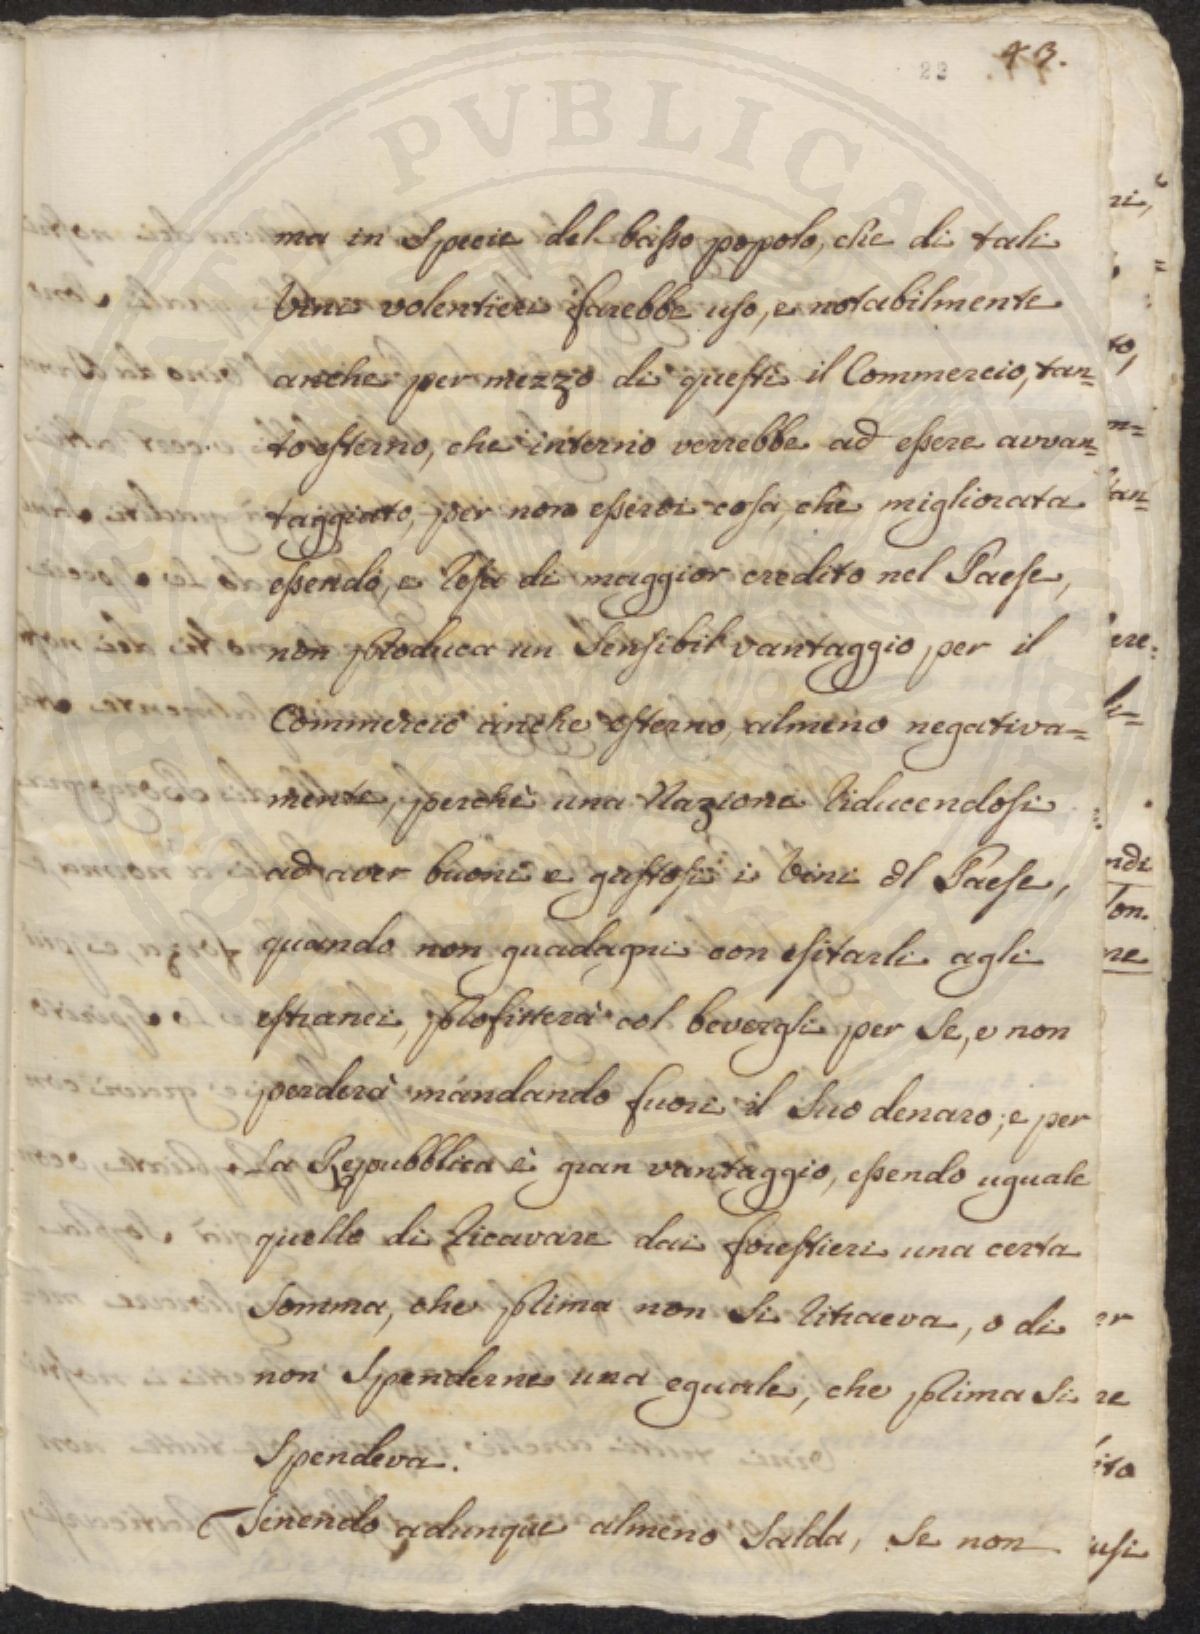 43.
23
ma in Specie del basso popolo, che di tali
Vini volentieri farebbe uso, e notabilmente
anche per mezzo di questi il Commercio, tan=
to esterno, che interno verrebbe ad essere avvan=
taggiato, per non esservi cosa, che migliorata
essendo, e resa di maggior credito nel Paese,
non produca un Sensibil vantaggio per il
Commercio anche esterno, almeno negativa=
mente, perchè una Nazione riducendosi
ad aver buoni e gustosi i Vini del Paese,
quando non guadagni con esitarli agli
estranei, profitterà col bevergli per se, e non
perderà mandando fuori il Suo denaro; e per
La Repubblica è gran vantaggio, essendo uguale
quello di ricavare dai forestieri una certa
Somma, che prima non Si ritraeva, o di
non Spenderne una eguale, che prima Si
Spendeva.
Tenendo adunque almeno Salda, Se non